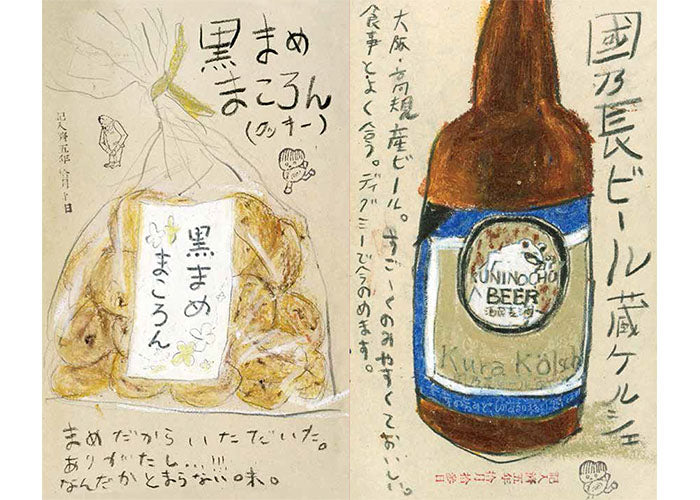 黒まめ
まころん
(クッキー)
記入済五年
黒まめ
まころん
まめだからいただいた。
ありがたし...!!!
なんだかとまらない味。
國乃長ビール蔵ケルシュ
大阪・高規産ビール。すごーくのみやすくておいしい。
食事とよく合う。ディグミーで今のめます。
KUNINOCHO
BEER
Kura Kölsch
記入済五年